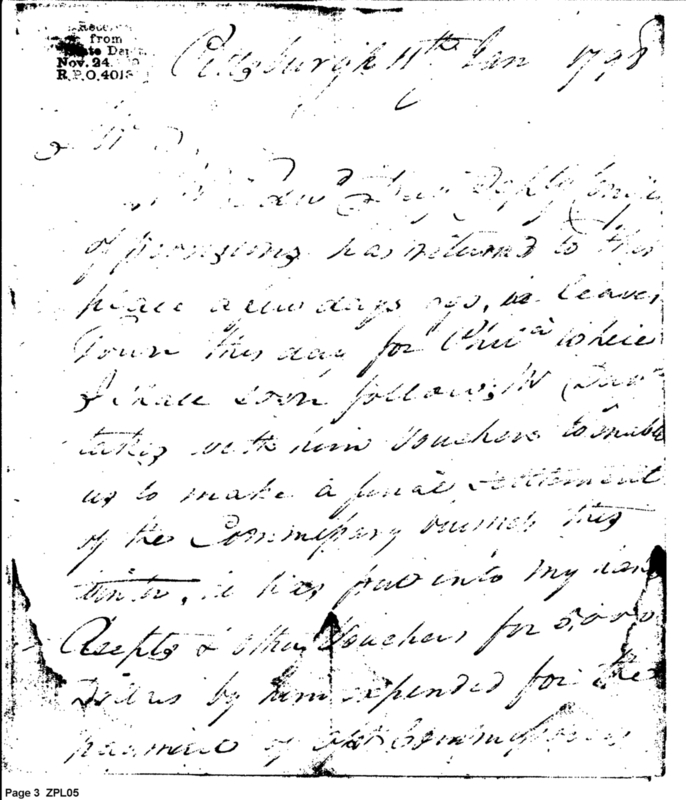 from
State Dep
Nov. 24.
R.P.O. 401
Pittsburgh 11th Jan 1798
Sir
of provisions has returned to this
place a few days ago, he leaves
Town this day for Phila where
I shall soon follow, Mr
takes with him Vouchers to enable
us to make a final settlement
of the Commissary business this
winter, he has put into my
Recepts & other Vouchers for 5.000
Dollars by him expended for the
of
Page 3 ZPL05